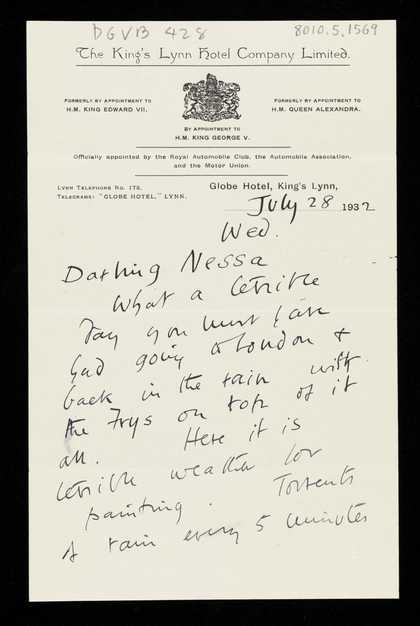 DGVB 428
8010.5.1569
The King's Lynn Hotel Company Limited.
FORMERLY BY APPOINTMENT TO
H.M. KING EDWARD VII.
FORMERLY BY APPOINTMENT TO
H.M. QUEEN ALEXANDRA.
BY APPOINTMENT TO
H.M. KING GEORGE V.
Officially appointed by the Royal Automobile Club, the Automobile Association,
and the Motor Union.
LYNN TELEPHONE NO. 172.
TELEGRAMS: "GLOBE HOTEL," LYNN.
Globe Hotel, King's Lynn,
July 28 1932
Wed.
Darling Nessa
What a terrible
day you must have
had going to London &
back in the rain with
the Frys on top of it
all. Here it is
terrible weather for
painting. Torrents
of rain every 5 minutes